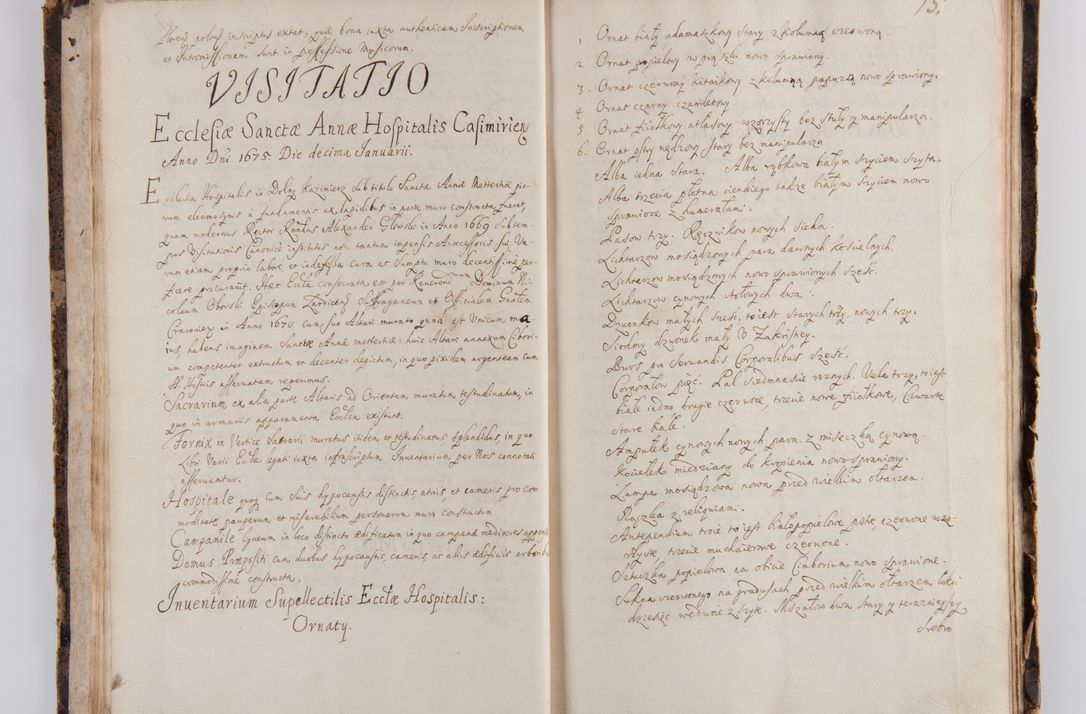 inscriptus extat, quae bona iuxta authenticam Inscriptionem
et Intromissionem sunt in possessione Musicorum.
VISITATIO
Ecclesiæ Sanctæ Annæ Hospitalis Casimirien
Anno Dni 1675. Die decima Ianuarii.
Ecclesia Hospitalis in Dolny Kazimierz sub titulo Sanctæ Annæ Mettertiæ pio-
rum eleemosynis à fundamentis ex lapidibus in parte muro constructa fuerat,
quam modernus Rector Rndus Alexander Glowski in Anno 1669 Subtem-
pus Visitationis Canonicæ institutus non tantum impensis Antecessoris sui Ve-
rum etiam proprio labore et indefessa cura ac sumptu muro decentissime per-
ficere procuravit. Hæc Eccla consecrata est per Reverendmum Dominum Ni-
colaum Oborski Episcopum Suffraganeum et Officialem Gnalem
Cracovien in Anno 1670 cum suo Altari murato quod est Unicum ma-
ius, habens imaginem Sanctæ Annæ mettertiæ: huic Altari annexum Cibori-
um competenter extructum et decenter depictum, in quo pixidem argenteam cum
SS. Hostiis asservatam reperimus.
Sacrarium ex alia parte Altaris ad Orientem muratum, testudinatum, in
quo in armariis apparamenta Ecclæ existunt.
Fornix in Vertice Sacrarii muratus itidem et testudinatus, splendidus, in quo
Libri Varii Ecclæ legati iuxta infrascriptum Inventarium per Nos connotati
asservantur.
Hospitale quoq cum suis hypocaustis distinctis, atriis et cameris pro com
moditate pauperum et miserabilium personarum muri constructum
Campanile ligneum in loco distincto ædificatum in quo campanæ mediocres
Domus Præpositi cum duobus hypocaustis, cameris, ac aliis ædificiis
commodissime constructa.
Inventarium Supellectilis Ecclæ Hospitalis:
Ornaty.
15.
1 Ornat biały adamaszkowy stary z kolumną czerwoną.
2 Ornat popielowy w prążki nowo sprawiony.
3. Ornat czerwony kitaikowy z kolumną papuzą nowo sprawiony.
4 Ornat czarny czamletowy
5 Ornat fiiołkowy atłasowy wzorzysty bez stuły y manipularza.
6. Ornat pstry nędzowy stary bez manipularza
Alba iedna stara. Alba rąbkowa białym szyciem szyta.
Alba trzecia płotna cienkiego także białym szyciem nowo
sprawiona z humerałami.
Pasow trzy. Ręcznikow nowych siedm.
Lichtarzow mosiądzowych para dawnych kościelnych.
Lichtarzow mosiądzowych nowo sprawionych sześć.
Lichtarzow cynowych stołowych dwa.
Dzwonkow małych sześć, to iest starych trzy, nowych trzy.
Siodmy dzwonek mały v Zakristyey.
Burs pro servandis Corporalibus sześć.
Corporałow pięć. Pal siedmnaście roznych. Vela trzy, to iest
białe iedno drugie czerwone, trzecie nowe fiiołkowe, Czwarte
stare białe.
Ampułek cynowych nowych para. z miseczką cynową.
Kociełek miedziany do kropienia nowo sprawiony.
Lampa mosiądzowa nowa przed wielkim ołtarzem.
Rączka z reliquiami.
Antependium troie to iest białopopielowe pstre czerwone wzo-
rzyste trzecie muchaierowe czerwone.
Sztuczka popielowa na obicie Cimborium nowo sprawione.
Sukna czerwonego na gradusach przed wielkim ołtarzem łokci
dziesięć wedwoie zszyte. Mszałow dwa stary y teraznieyszy
srebro